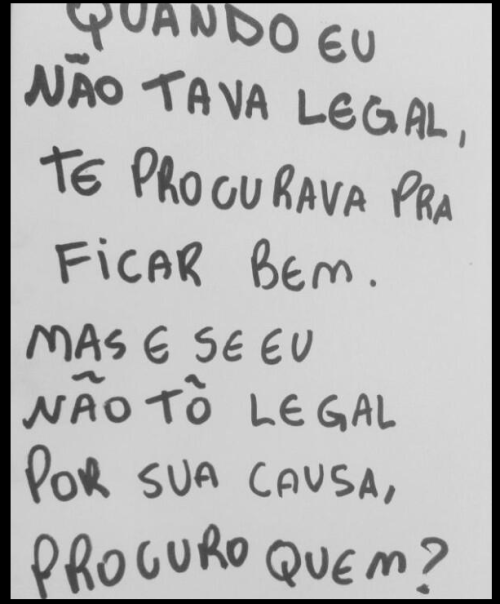 QUANDO EU
NÃO TAVA LEGAL,
TE PROCURAVA PRA
FICAR BEM.
MAS E SE EU
NÃO TÔ LEGAL
POR SUA CAUSA,
PROCURO QUEM?